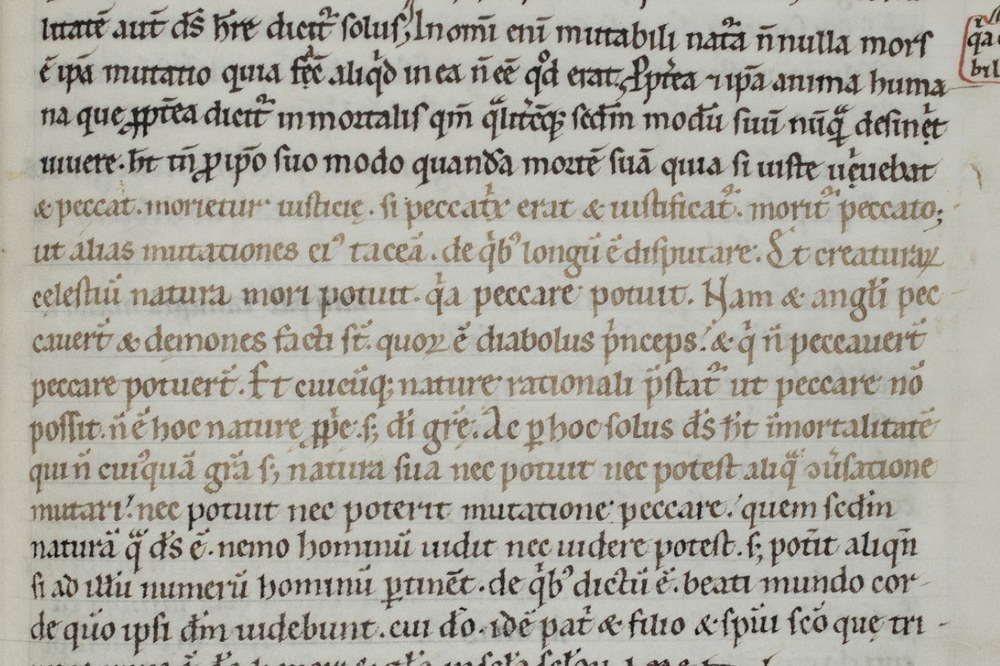 litatē aut̄ d̄s h̄re dicit᷑ solus; In om̄i eni mutabili nat᷑a n̄ nulla mors
ē ipā mutatio quia fec̄ aliqᵈ in ea n̄ eē qᵈ erat. Ꝓpt̄ea ⁊ ipā anima huma
na que ꝓpt̄ea dicit᷑ inmortalis qm̄ qͣlit̄cūq; scd̄m modū suū nūqͣ desinet
uiuere. h̄t tn̄ ꝓ ipō suo modo quandā mortē suā quia si iuste uiuebat
& peccat. morietur iusticię. si peccatͥx erat & iustificat᷑. morit᷑ peccato;
ut alias mutationes eiꝰ taceā. de qͥbꝰ longū ē disputare. Et creaturaꝝ
cęlestiū natura mori potuit. qͥa peccare potuit. Nam & angl̄i pec
cauer̄t & demones facti st̄. quoꝝ ē diabolus pͥnceps. & qͥ n̄ peccauer̄t
peccare potuer̄t. Et cuicūq; nature rationali p̄stat᷑ ut peccare nō
possit. n̄ ē hoc naturę ꝓpͥe. s; dī grę̄. Ac ꝑ hoc solus d̄s h̄t īmortalitatē
qui n̄ cuiꝰquā grā s; natura sua nec potuit nec potest aliqͣ ↄūsatione
mutari. nec potuit nec poterit mutatione peccare. quem scd̄m
naturā qͣ d̄s ē. nemo hominū uidit nec uidere potest. s; pot̄it aliqn̄
si ad illū numerū hominū ꝑtinēt. de qͥbꝰ dictū ē. beati mundo cor-
de quō ipsi dm̄ uidebunt. cui dō. idē pat̄ & filio & spū sc̄o que tri-
q̄a
bil